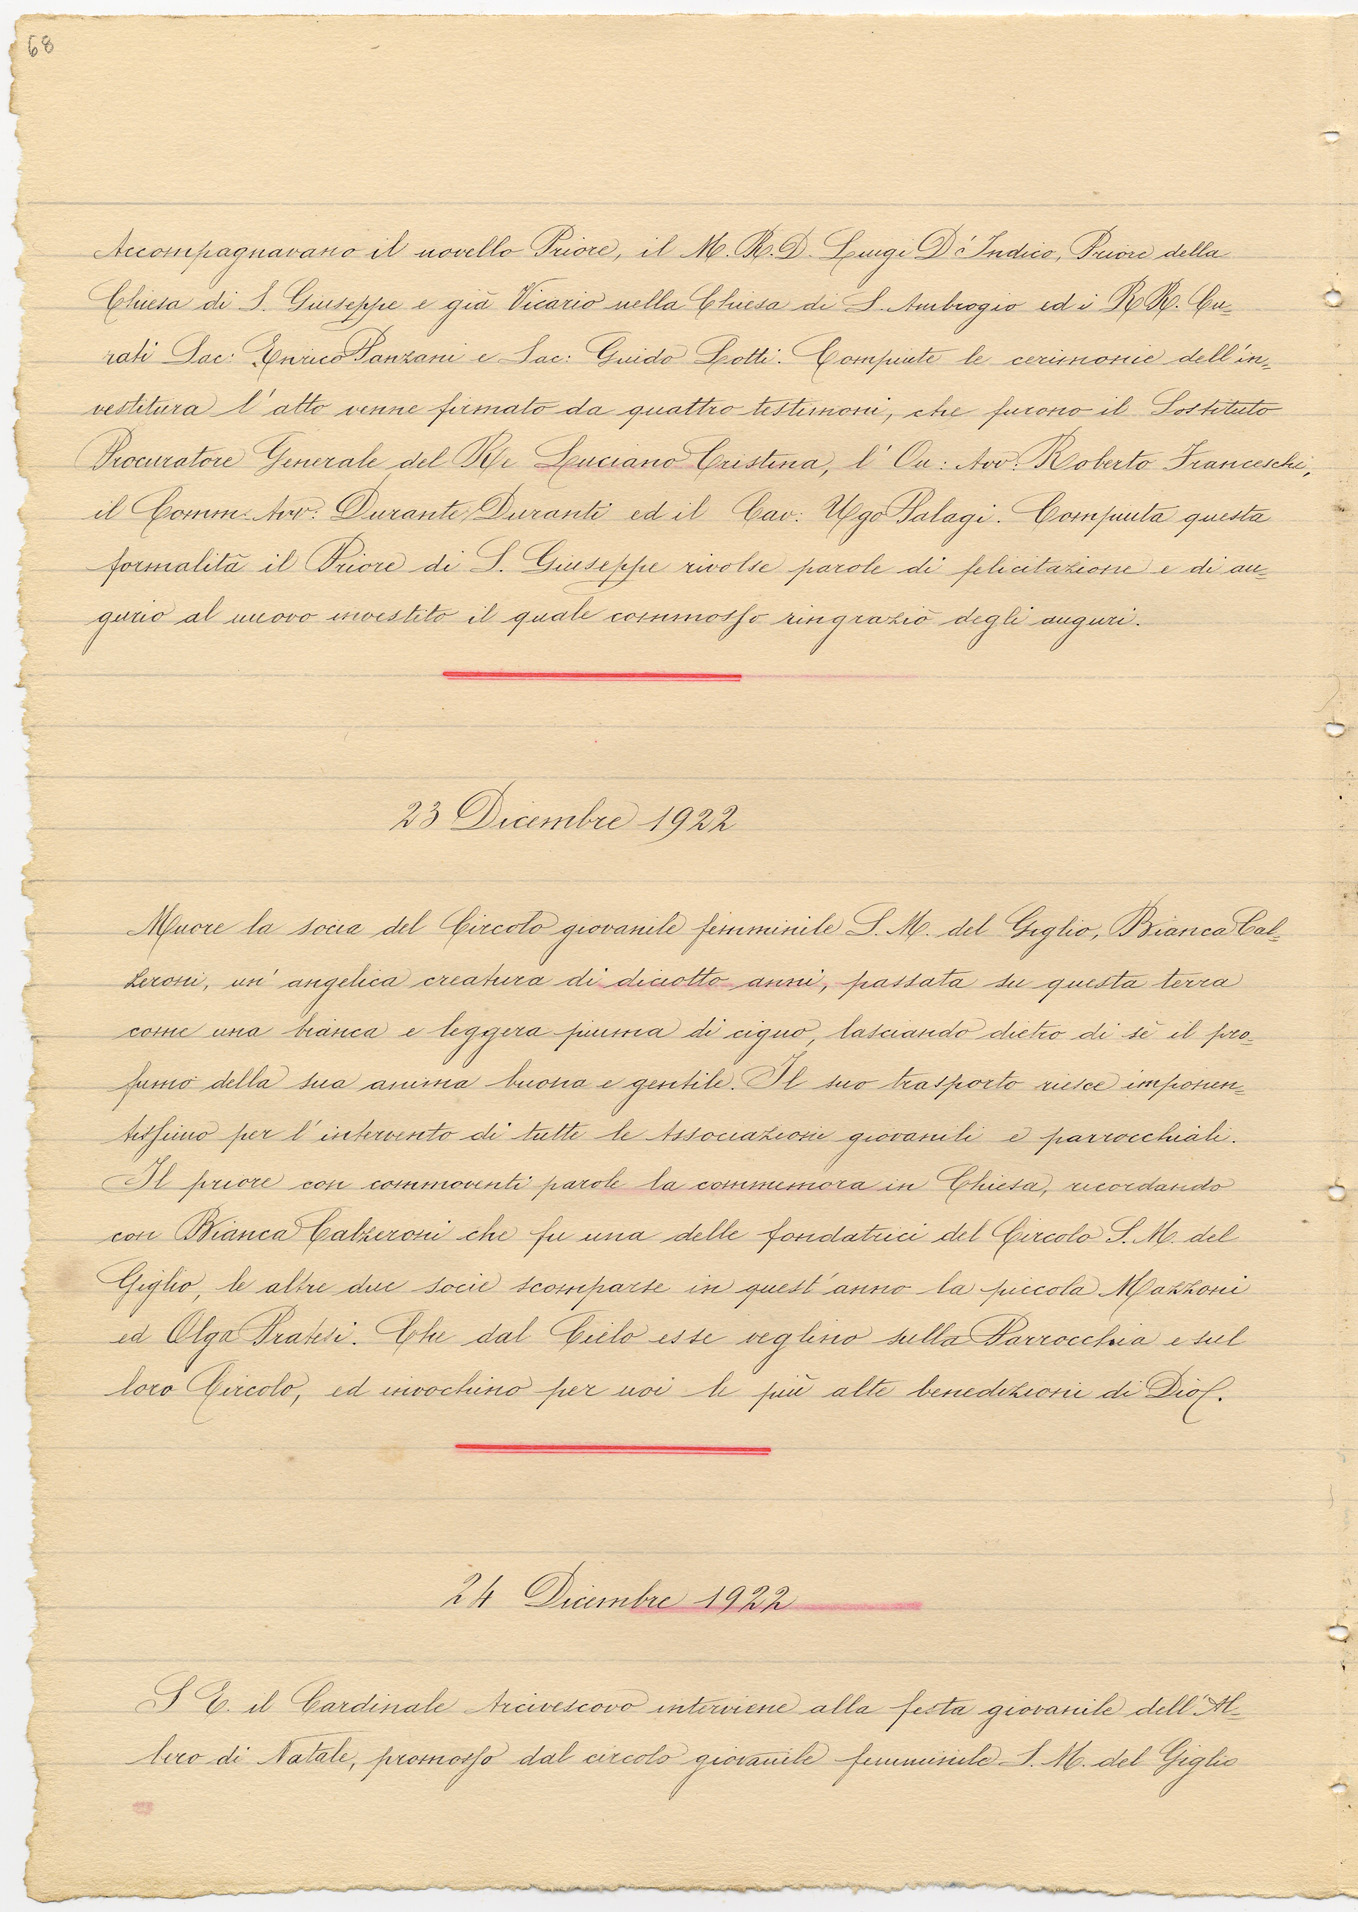 68
Accompagnavano il novello Priore, il M. R. D. Luigi D'Indico, Priore della
Chiesa di S. Giuseppe e già Vicario nella Chiesa di S. Ambrogio ed i RR. Cu=
rati Sac: Enrico Panzani e Sac: Guido Lotti. Compiute le cerimonie dell'in=
vestitura l'atto venne firmato da quattro testimoni, che furono il Sostituto
Procuratore Generale del Re Luciano Cristina, l'On: Avv: Roberto Franceschi,
il Comm: Avv: Durante Duranti ed il Cav: Ugo Palagi. Compiuta questa
formalità il Priore di S. Giuseppe rivolse parole di felicitazione e di au=
gurio al nuovo investito il quale commosso ringraziò degli auguri.
23 Dicembre 1922
Muore la socia del Circolo giovanile femminile S. M. del Giglio, Bianca Cal=
zeroni, un'angelica creatura di diciotto anni, passata su questa terra
come una bianca e leggera piuma di cigno, lasciando dietro di sè il pro=
fumo della sua anima buona e gentile. Il suo trasporto riesce imponen=
tissimo per l'intervento di tutte le Associazioni giovanili e parrocchiali.
Il priore con commoventi parole la commemora in Chiesa, ricordando
con Bianca Calzeroni che fu una delle fondatrici del Circolo S. M. del
Giglio, le altre due socie scomparse in quest'anno la piccola Mazzoni
ed Olga Pratesi. Che dal Cielo esse veglino sulla Parrocchia e sul
loro Circolo, ed invochino per noi le più alte benedizioni di Dio.
24 Dicembre 1922
S. E. il Cardinale Arcivescovo interviene alla festa giovanile dell'Al=
bero di Natale, promosso dal circolo giovanile femminile S. M. del Giglio